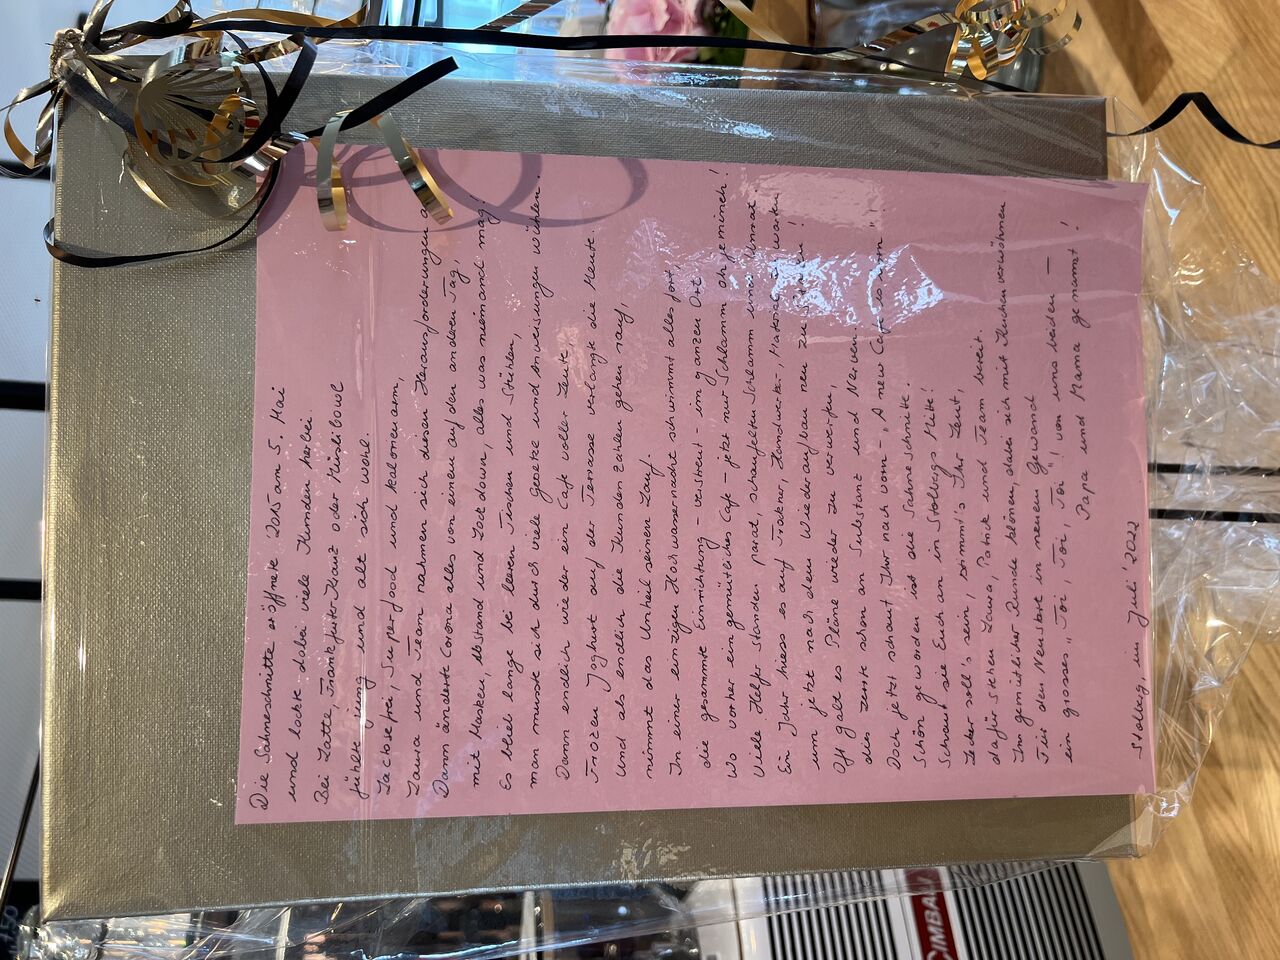 Die Sahneschnitte eröffnete 2015 am 5. Mai
und lockte dabei viele Kunden herbei.
Bei Latte, Frankfurter Kranz oder Müslibowl
fühlte jung und alt sich wohl.
Lactosefrei, Superfood und kalorienarm,
Laura und Team nahmen sich diesen Herausforderungen a
Dann änderte Corona alles von einem auf den anderen Tag,
mit Masken, Abstand und Lockdown, alles was niemand mag!
Es blieb lange bei leeren Tischen und Stühlen,
man musste sich durch viele Gesetze und Anweisungen wühlen.
Dann endlich wieder ein Café voller Leute
Frozen Joghurt auf der Terrasse verlangte die Meute.
Und als endlich die Kundenzahlen gehen rauf,
nimmt das Unheil seinen Lauf.
In einer einzigen Hochwassernacht schwimmt alles fort,
die gesammte Einrichtung - verstreut - im ganzen Ort.
Wo vorher ein gemütliches Café - jetzt nur Schlamm oh jemineh!
Viele Helfer standen parad, schaufelten Schlamm und Unrat.
Ein Jahr hiess es auf Trockner, Handwerker, Material zu warten
um jetzt nach dem Wiederaufbau neu zu starten!
Oft galt es Pläne wieder zu verwerfen,
dies zerrte schon an Substanz und Nerven.
Doch jetzt schaut Ihr nach vorn - „A new Café is born"!
Schön geworden ist die Sahneschnitte.
Schaut sie Euch an, in Stolbergs Mitte!
Lecker soll's sein, stimmt's Ihr Leut,
dafür stehen Laura, Patrick und Team bereit.
In gemütlicher Runde können, dabei sich mit Kuchen verwöhnen
Für den Neustart in neuen Gewand
ein grosses „Toi, Toi, Toi"! von uns beiden —
Papa und Mama genannt!
Stolberg, im Juli 2022
CIMBAL